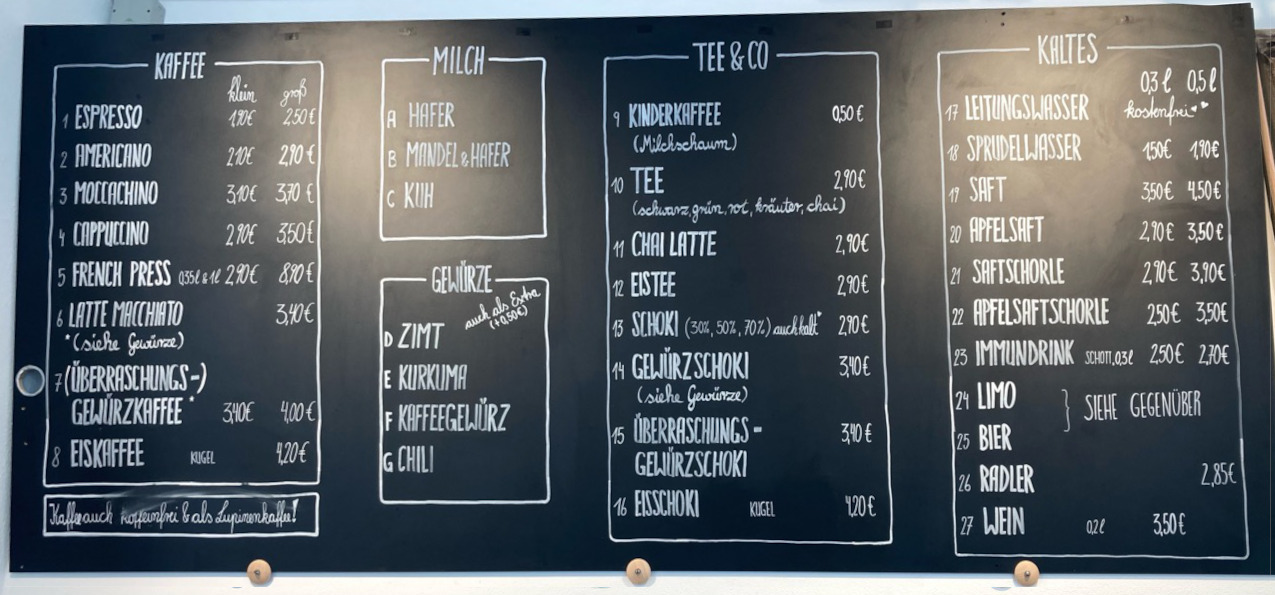 KAFFEE
klein groß
1 ESPRESSO 1,90€ 2,50€
2 AMERICANO 2,10€ 2,90€
3 MOCCACHINO 3,10€ 3,70€
4 CAPPUCCINO 2,90€ 3,50€
5 FRENCH PRESS 0,35l & 1l 2,90€ 8,90€
6 LATTE MACCHIATO 3,40€
*(siehe Gewürze)
7 (ÜBERRASCHUNGS-)
GEWÜRZKAFFEE* 3,40€ 4,00€
8 EISKAFFEE KUGEL 4,20€
Kaffee auch koffeinfrei & als Lupinenkaffee!
MILCH
A HAFER
B MANDEL & HAFER
C KUH
GEWÜRZE
auch als Extra
(+0,50€)
D ZIMT
E KURKUMA
F KAFFEEGEWÜRZ
G CHILI
TEE & CO
9 KINDERKAFFEE 0,50€
(Milchschaum)
10 TEE 2,90€
(schwarz, grün, rot, kräuter, chai)
11 CHAI LATTE 2,90€
12 EISTEE 2,90€
13 SCHOKI (30%, 50%, 70%) auch kalt* 2,90€
14 GEWÜRZSCHOKI 3,40€
(siehe Gewürze)
15 ÜBERRASCHUNGS- 3,40€
GEWÜRZSCHOKI
16 EISSCHOKI KUGEL 4,20€
KALTES
0,3l 0,5l
17 LEITUNGSWASSER kostenfrei ♥♥
18 SPRUDELWASSER 1,50€ 1,90€
19 SAFT 3,50€ 4,50€
20 APFELSAFT 2,90€ 3,50€
21 SAFTSCHORLE 2,90€ 3,90€
22 APFELSAFTSCHORLE 2,50€ 3,50€
23 IMMUNDRINK SCHOTT, 0,3l 2,50€ 2,70€
24 LIMO } SIEHE GEGENÜBER
25 BIER
26 RADLER 2,85€
27 WEIN 0,2l 3,50€